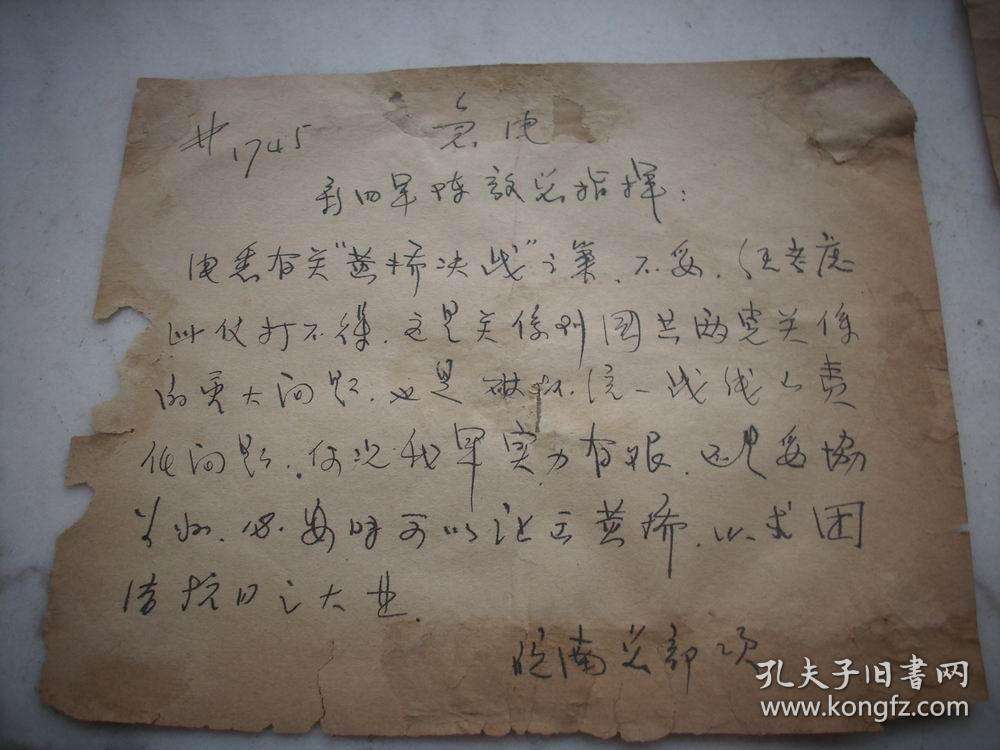 #1745 急电
新四军陈毅总指挥：
电悉有关"黄桥决战"之策，不妥，任老应
此仗打不得，这是关係到国共两党关係
的重大问题，也是破坏统一战线之责
任问题，何况我军实力有限，还是妥协
为好，必要时可以让出黄桥，以求团
结抗日之大业.
皖南总部 项
孔夫子旧书网
www.kongfz.com